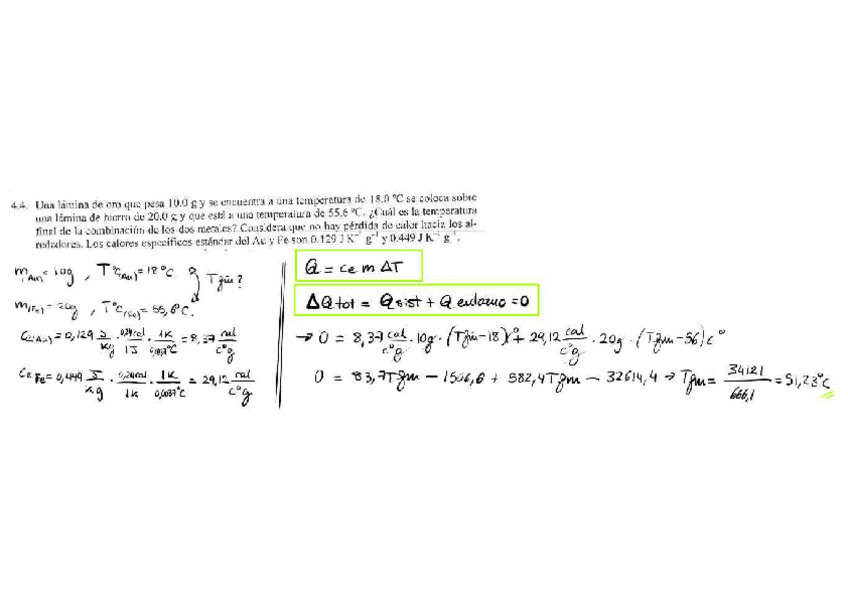 4.4. Una lámina de oro que pesa 10.0 g y se encuentra a una temperatura de 18.0 ºC se coloca sobre
una lámina de hierro de 20.0 g y que está a una temperatura de 55.6 ºC. ¿Cuál es la temperatura
final de la combinación de los dos metales? Considera que no hay pérdida de calor hacia los al-
rededores. Los calores específicos estándar del Au y Fe son 0.129 J K⁻¹ g⁻¹ y 0.449 J K⁻¹ g⁻¹.
m(Au) = 10g , TºC(Au) = 18ºC
T fin?
m(Fe) = 20g , TºC(Fe) = 55,6ºC.
Ce(Au) = 0,129 J/kg · 0,24cal/1J · 1K/ºC = 8,37 cal/Cºg
Ce Fe = 0,449 J/kg · 0,24cal/1K · 1K/0,0037ºC = 29,12 cal/Cºg
Q = ce m ΔT
ΔQ tot = Q sist + Q entorno = 0
→ 0 = 8,37 cal/Cºg · 10g · (Tfin-18)Cº + 29,12 cal/Cºg · 20g · (Tfin-56) Cº
0 = 83,7Tfin - 1506,6 + 582,4Tfin - 32614,4 → Tfin = 34121/666,1 = 51,23ºC